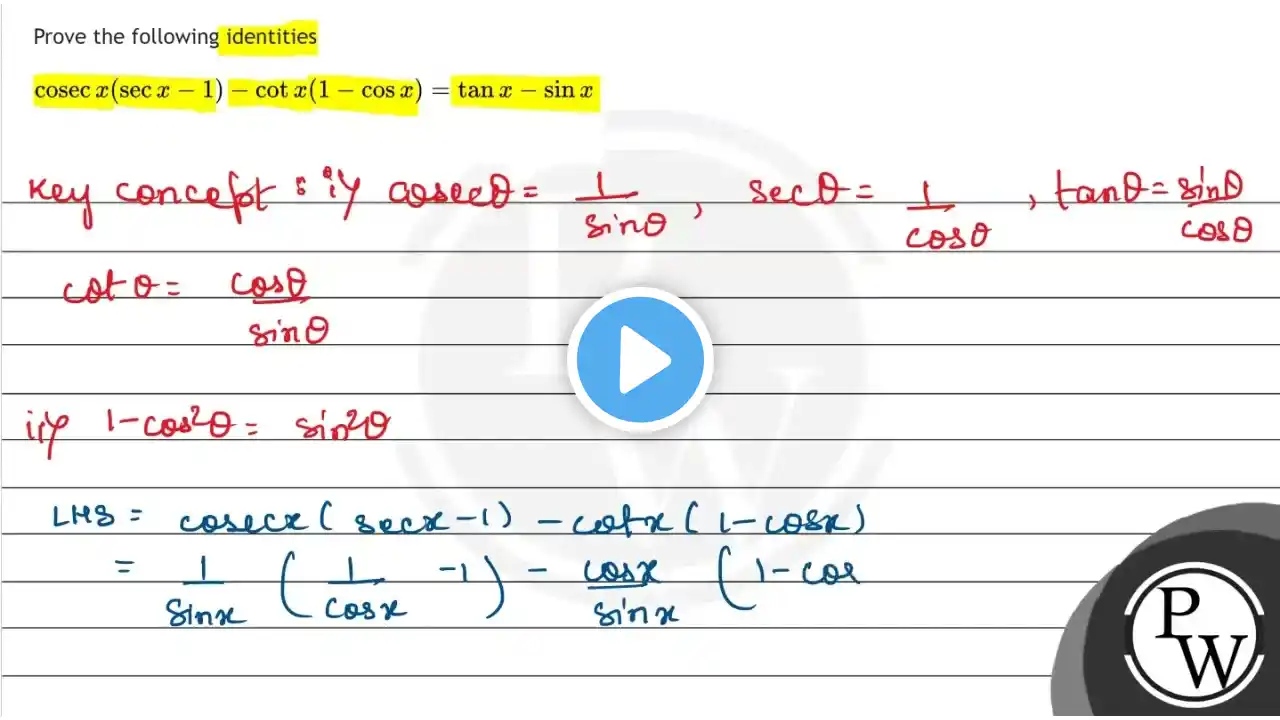 Prove the following identities
cosec x(sec x − 1) − cot x(1 − cos x) = tan x − sin x
Key concept : i) cosecθ = 1/sinθ, secθ = 1/cosθ, tanθ = sinθ/cosθ
cot θ = cosθ/sinθ
ii) 1-cos²θ = sin²θ
LHS = cosecx ( secx -1) - cotx ( 1-cosx)
= 1/sinx ( 1/cosx -1) - cosx/sinx ( 1-cos
PW
PW